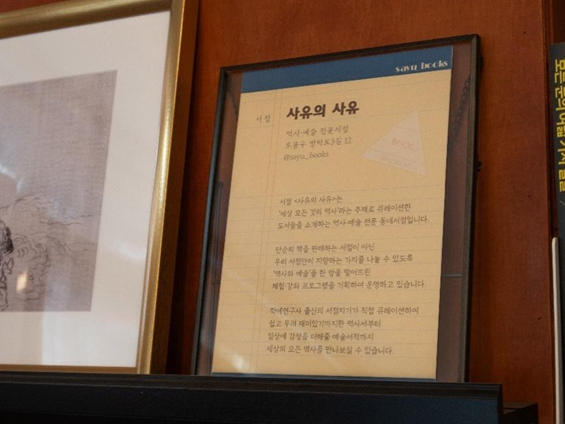 sayu books
서점
사유의 사유
역사·예술 전문서점
도봉구 방학로3길 12
@sayu_books
BRICK
서점 <사유의 사유>는
'세상 모든 것의 역사'라는 주제로 큐레이션한
도서들을 소개하는 역사·예술 전문 동네서점입니다.
단순히 책을 판매하는 서점이 아닌
우리 서점만이 지향하는 가치를 나눌 수 있도록
'역사와 예술'을 한 방울 떨어뜨린
체험·강좌 프로그램을 기획하여 운영하고 있습니다.
학예연구사 출신의 서점지기가 직접 큐레이션하여
쉽고 두껍 재미있기까지한 역사서부터
일상에 감성을 더해줄 예술서적까지
세상의 모든 역사를 만나보실 수 있습니다.